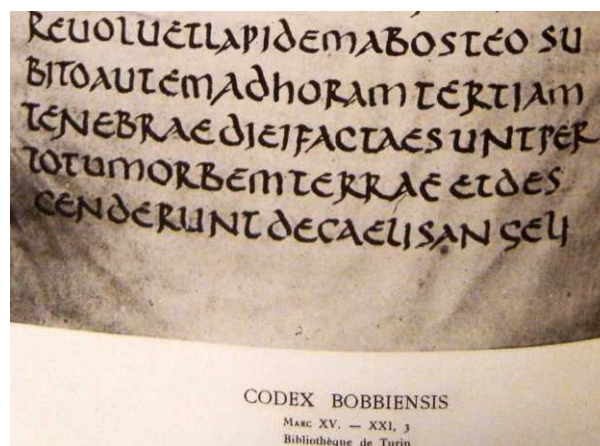 REUOLUETLAPIDEMABOSTEO SU
BITOAUTEMADHORAMTERTIAM
TENEBRAEDIEIFACTAESUNTPER
TOTUMORBEMTERRAE ETDES
CENDERUNTDECAELISANGELI
CODEX BOBBIENSIS
MARC XV. — XXI, 3
Bibliothèque de Turin